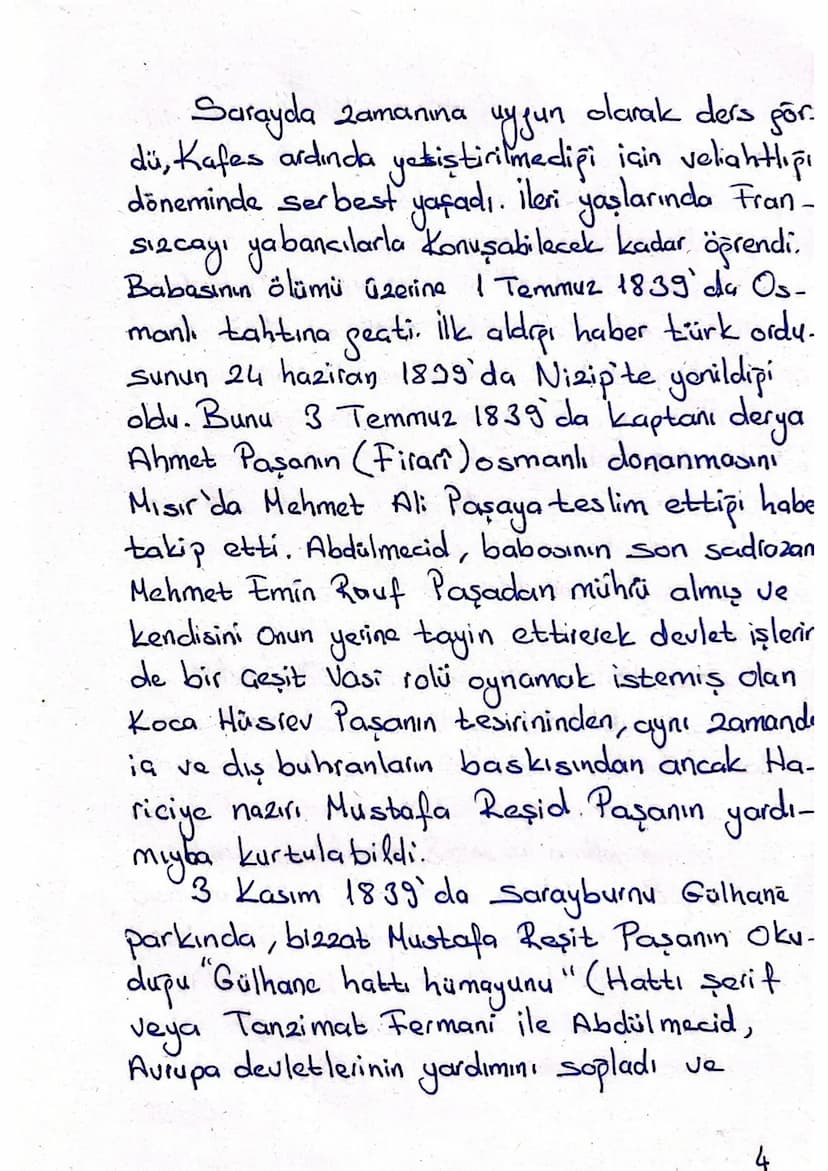 Sarayda zamanına uygun olarak ders gör-
dü, Kafes ardında yetiştirilmediği için veliahtlığı
döneminde serbest yaşadı. İleri yaşlarında Fran-
sızcayı yabancılarla konuşabilecek kadar öğrendi.
Babasının ölümü üzerine 1 Temmuz 1839'da Os-
manlı tahtına geçti. İlk aldığı haber türk ordu-
sunun 24 haziran 1839'da Nizip'te yenildiği
oldu. Bunu 3 Temmuz 1839'da kaptanı derya
Ahmet Paşanın (Firarî) osmanlı donanmasını
Mısır'da Mehmet Ali Paşaya teslim ettiği habe
takip etti. Abdülmecid, babasının son sadrazam
Mehmet Emin Rauf Paşadan mührü almış ve
kendisini Onun yerine tayin ettirerek devlet işlerin
de bir çeşit Vasi rolü oynamak istemiş olan
Koca Hüsrev Paşanın tesirininden, aynı zamanda
iç ve dış buhranların baskısından ancak Ha-
riciye nazırı Mustafa Reşid Paşanın yardı-
mıyba kurtulabildi.
3 Kasım 1839'da Sarayburnu Gülhane
parkında, bizzat Mustafa Reşit Paşanın Oku-
duğu "Gülhane hattı hümayunu" (Hattı şerif
veya Tanzimat Fermani ile Abdülmecid,
Avrupa devletlerinin yardımını sağladı ve
4